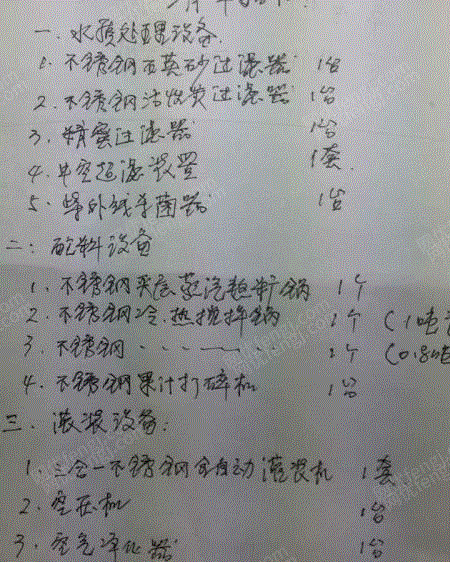 一、水预处理设备
1、不锈钢石英砂过滤器 1台
2、不锈钢活性炭过滤器 1台
3、精密过滤器 1台
4、中空超滤装置 1套
5、紫外线杀菌器 1台
二:配料设备
1、不锈钢夹层蒸汽 锅 1个
2、不锈钢冷、热搅拌锅 1个 (1吨
3、不锈钢 · · — · · 1个 (0.8吨
4、不锈钢果汁打碎机 1台
三、灌装设备:
1、三合一不锈钢全自动灌装机 1套
2、空压机 1台
3、空气净化器 1台